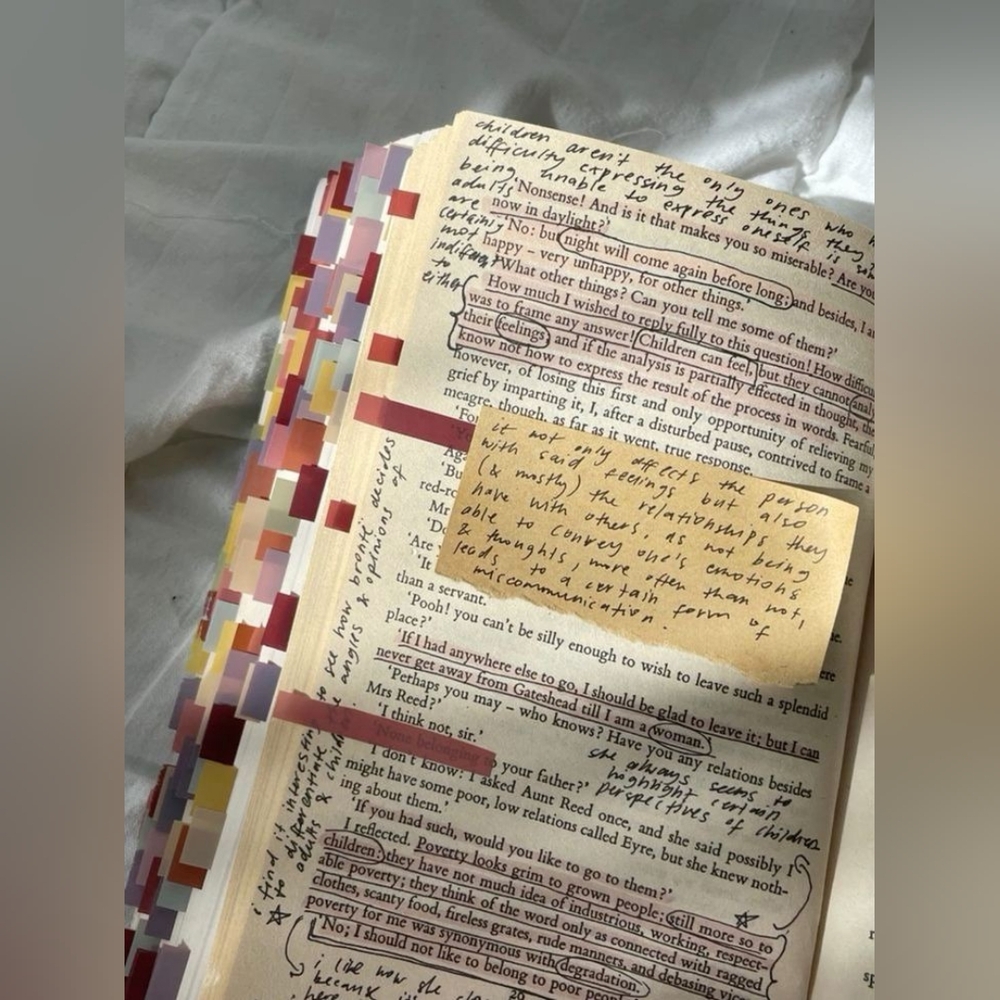 children aren't the only ones who h
difficulty expressing the things they
being unable to express oneself is
adults
are
certainly
not
indifferent
to
either
'Nonsense! And is it that makes you so miserable? Are you
now in daylight?'
'No: but night will come again before long; and besides, I a
happy – very unhappy, for other things.'
'What other things? Can you tell me some of them?'
How much I wished to reply fully to this question! How difficu
was to frame any answer! Children can feel, but they cannot analy
their feelings; and if the analysis is partially effected in thought, the
know not how to express the result of the process in words. Fearful,
however, of losing this first and only opportunity of relieving my
grief by imparting it, I, after a disturbed pause, contrived to frame a
meagre, though, as far as it went, true response.
'For
'Yo
Ag
'Bu
red-ro
Mr
'Do
'Are
'It
it not only affects the person
with said feelings but also
(& mostly) the relationships they
have with others, as not being
able to convey one's emotions
& thoughts, more often than not,
leads to a certain form of
miscommunication.
e
he.
ere
than a servant.'
'Pooh! you can't be silly enough to wish to leave such a splendid
place?'
'If I had anywhere else to go, I should be glad to leave it; but I can
never get away from Gateshead till I am a woman.'
'Perhaps you may – who knows? Have you any relations besides
Mrs Reed?'
'I think not, sir.'
'None belonging to your father?'
she always seems to
highlight certain
perspectives of children
'I don't know: I asked Aunt Reed once, and she said possibly I
might have some poor, low relations called Eyre, but she knew noth-
ing about them.'
'If you had such, would you like to go to them?'
I reflected. Poverty looks grim to grown people; still more so to
children: they have not much idea of industrious, working, respect-
able poverty; they think of the word only as connected with ragged
clothes, scanty food, fireless grates, rude manners, and debasing vice
poverty for me was synonymous with degradation.
'No; I should not like to belong to poor peopl
i like how she
because
here
20
i find it interesting to see how brontë decides
to differentiate the angles & opinions of
adults & children
r
sp